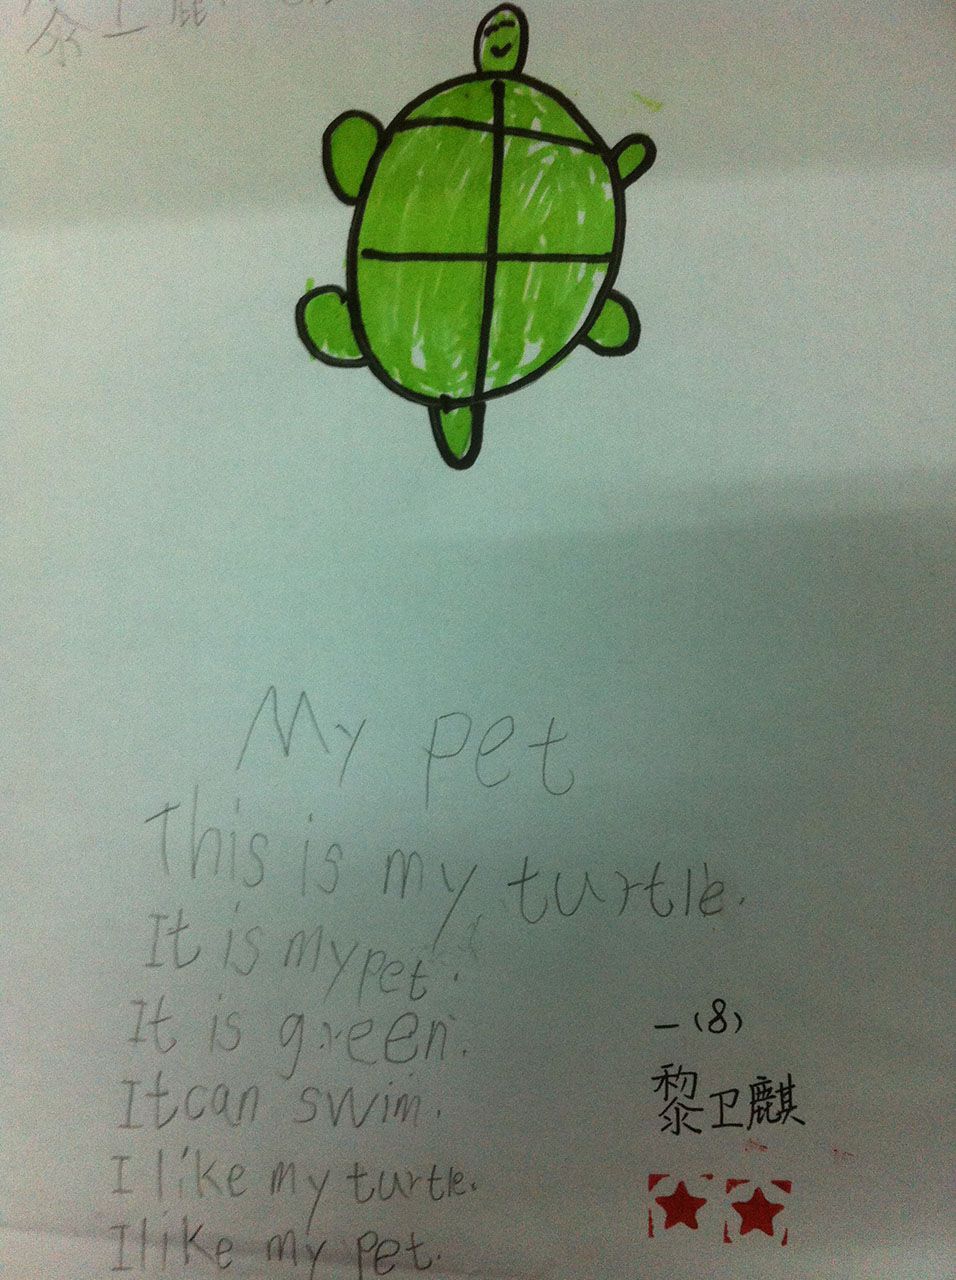 黎卫麒
My pet
This is my turtle.
It is my pet.
It is green.
It can swim.
I like my turtle.
I like my pet.
一(8)
黎卫麒